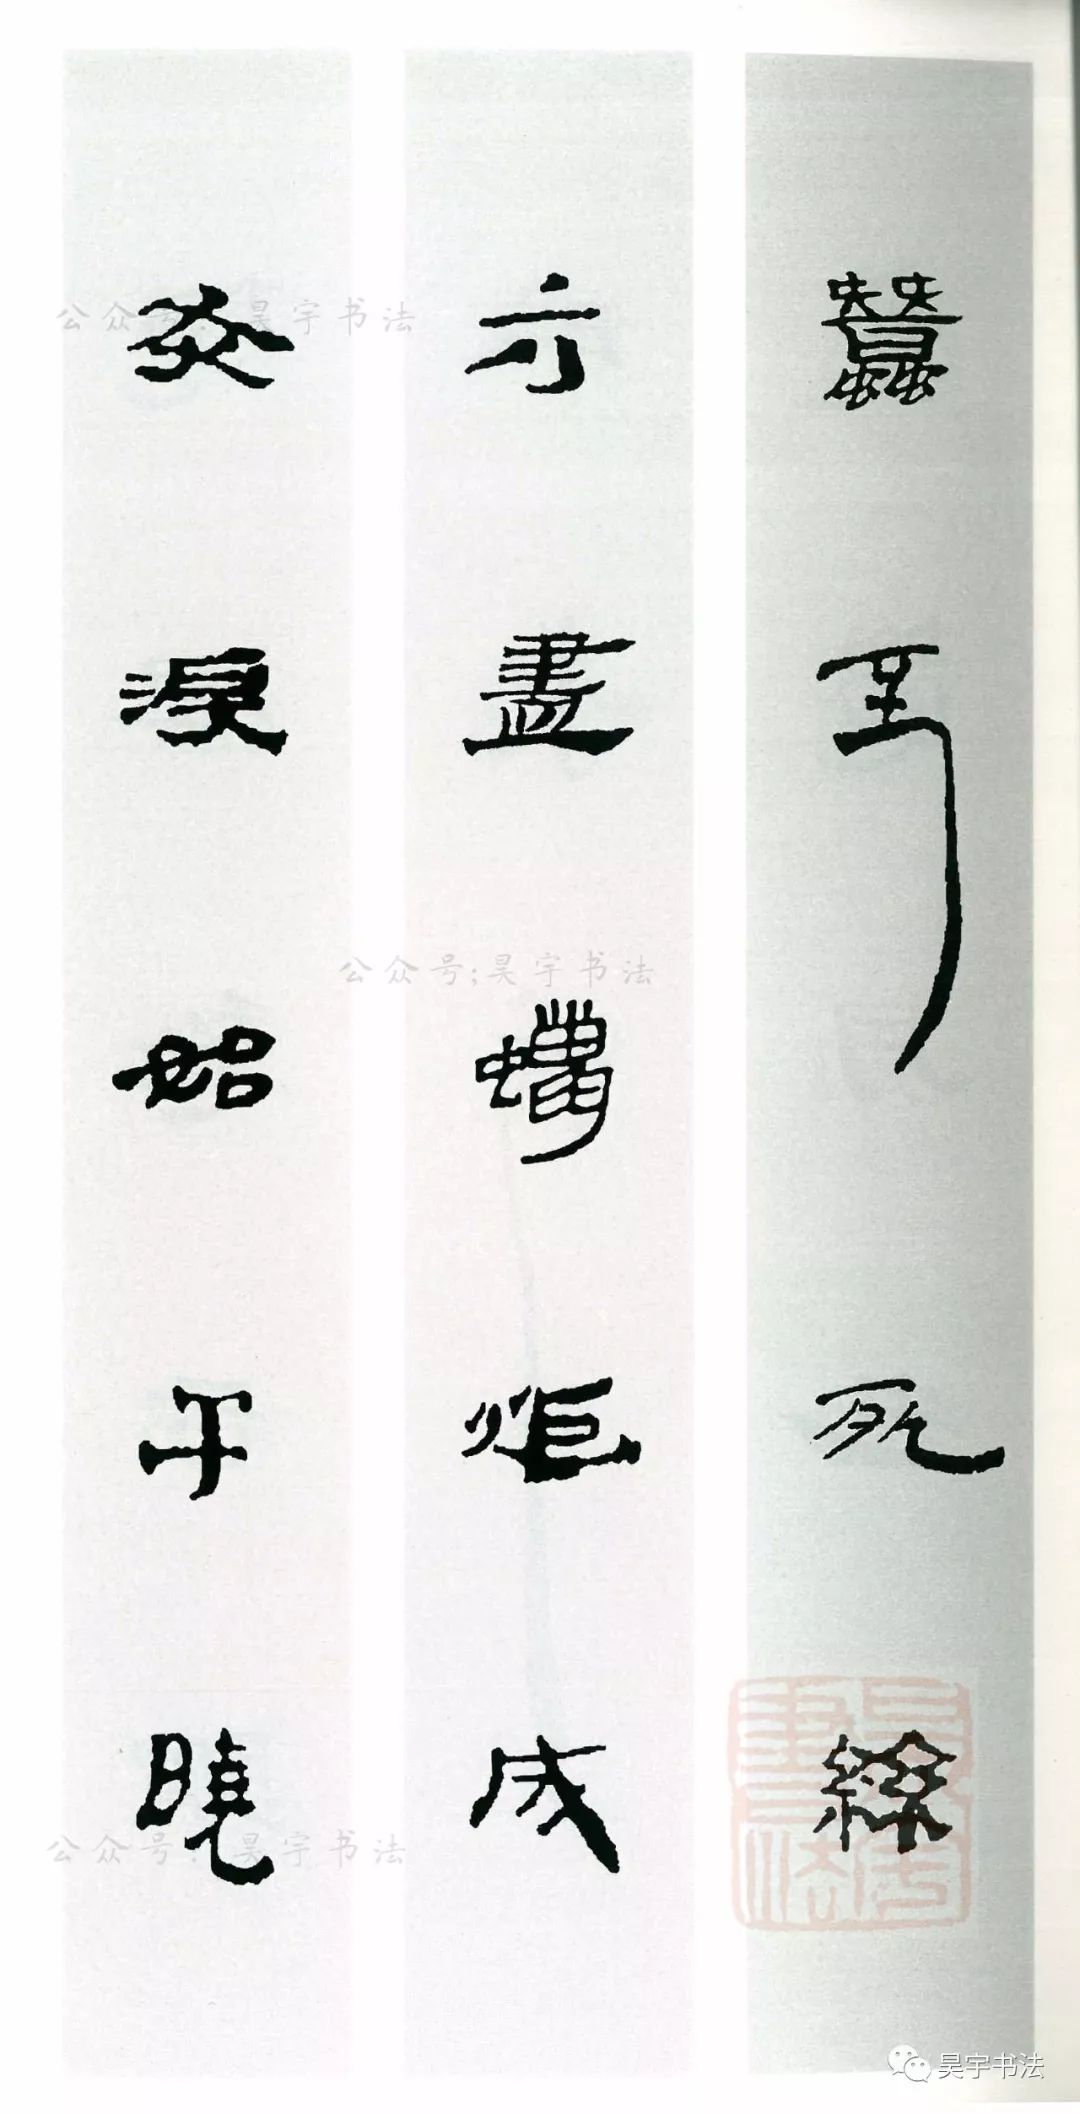 蠶到死絲
方盡蠟炬成
灰淚始干曉
公众号:昊宇书法
公众号:昊宇书法
公众号:昊宇书法
昊宇书法